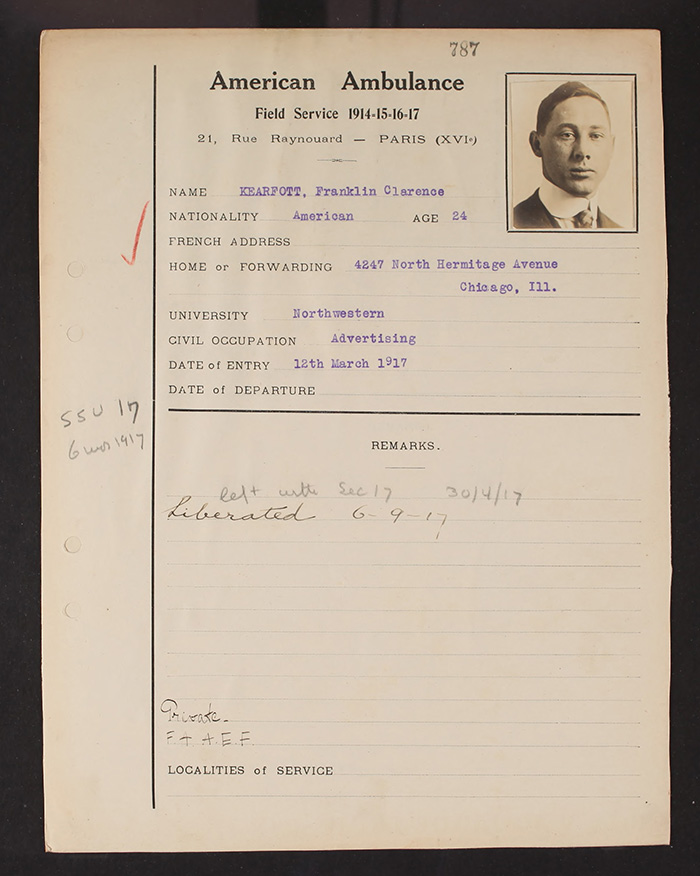 787
American Ambulance
Field Service 1914-15-16-17
21, Rue Raynouard — PARIS (XVIe)
NAME KEARFOTT, Franklin Clarence
NATIONALITY American AGE 24
FRENCH ADDRESS
HOME or FORWARDING 4247 North Hermitage Avenue
Chicago, Ill.
UNIVERSITY Northwestern
CIVIL OCCUPATION Advertising
DATE of ENTRY 12th March 1917
DATE of DEPARTURE
SSU 17
6 mos 1917
REMARKS.
left with Sec 17 30/4/17
Liberated 6-9-17
Private
A.E.F.
LOCALITIES of SERVICE